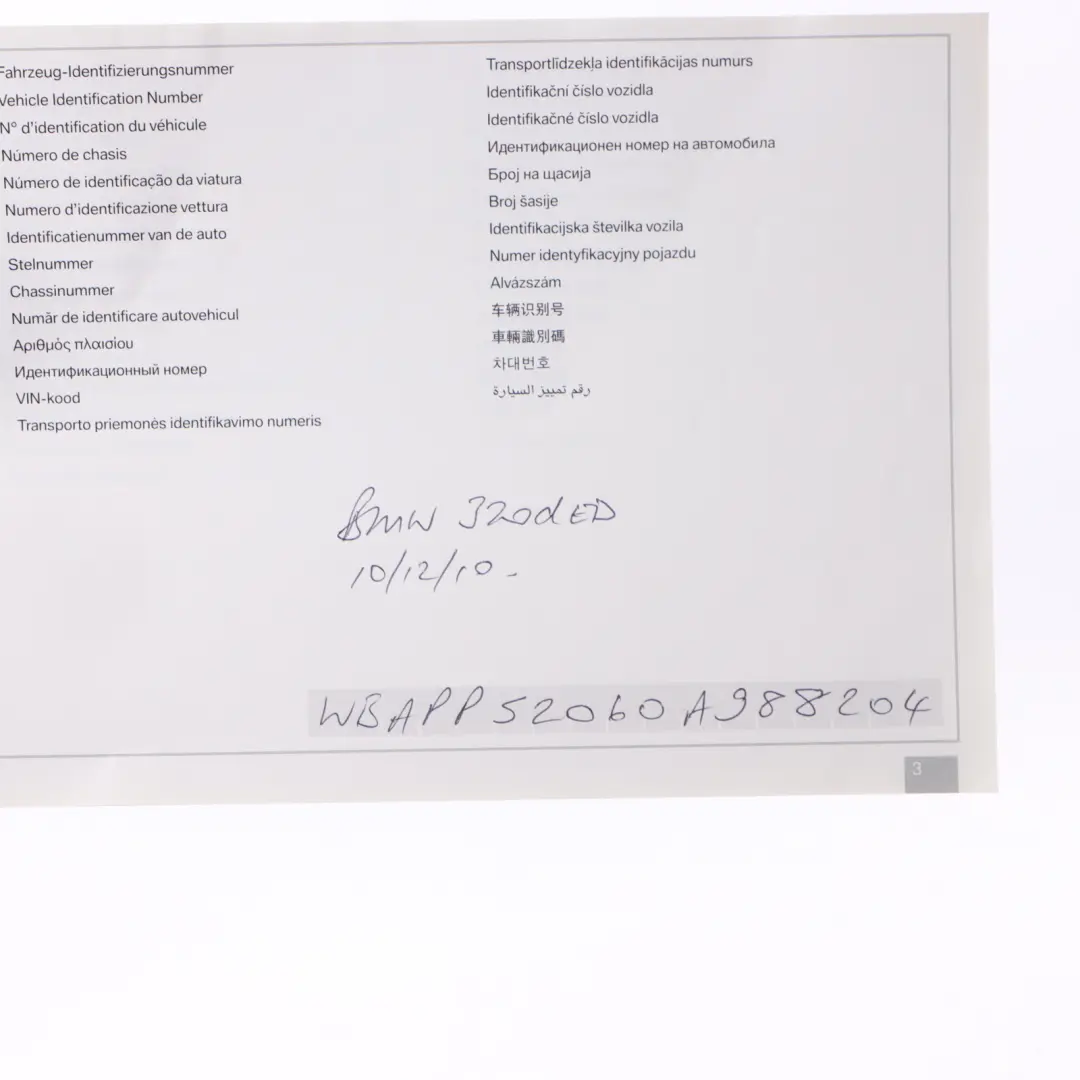 Fahrzeug-Identifizierungsnummer
Vehicle Identification Number
N° d'identification du véhicule
Número de chasis
Número de identificação da viatura
Numero d'identificazione vettura
Identificatienummer van de auto
Stelnummer
Chassinummer
Număr de identificare autovehicul
Αριθμός πλαισίου
Идентификационный номер
VIN-kood
Transporto priemonės identifikavimo numeris
Transportlīdzekļa identifikācijas numurs
Identifikační číslo vozidla
Identifikačné číslo vozidla
Идентификационен номер на автомобила
Број на щасија
Broj šasije
Identifikacijska številka vozila
Numer identyfikacyjny pojazdu
Alvázszám
车辆识别号
車輛識別碼
차대번호
رقم تمييز السيارة
BMW 320d ED
10/12/10 -
WBAPP52060A988204
3